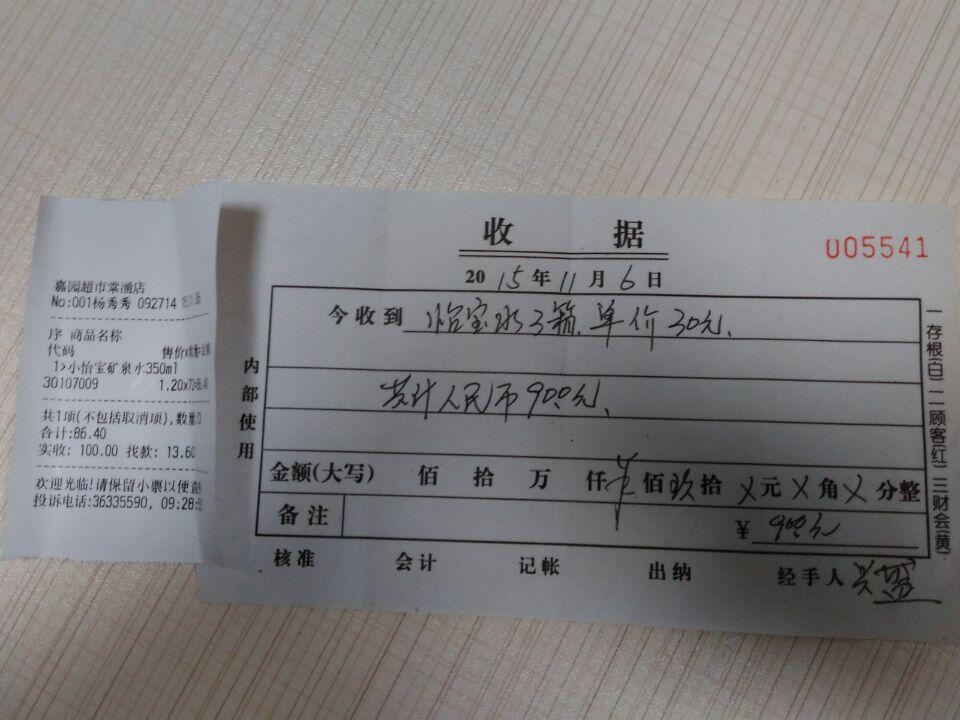 嘉园超市棠涌店
No:001杨秀秀 092714
序 商品名称
代码 售价x数量=金额
1>小怡宝矿泉水350ml
30107009 1.20x72=86.40
共1项(不包括取消项),数量72
合计:86.40
实收: 100.00 找款: 13.60
欢迎光临!请保留小票以便查
投诉电话:36335590, 09:28:
收据
005541
2015年11月6日
今收到 怡宝水3箱.单价30元.
共计人民币90.0元.
金额(大写) 佰 拾 万 仟 佰 玖拾 X元 X角 X分整
备注
¥ 90.0元
核准 会计 记帐 出纳 经手人
内部使用
一存根(白)二顾客(红)三财会(黄)